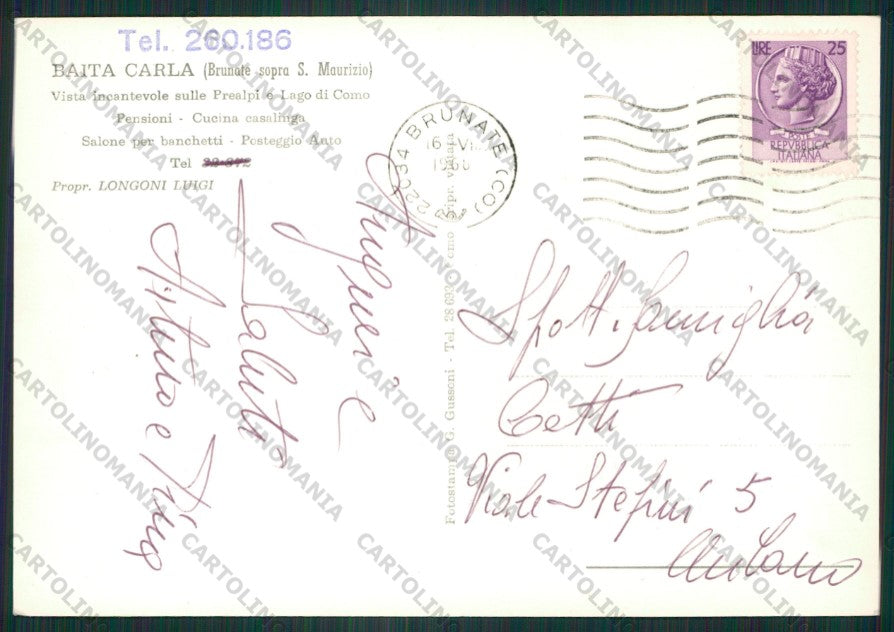 Tel. 260.186
BAITA CARLA (Brunate sopra S. Maurizio)
Vista incantevole sulle Prealpi e Lago di Como
Pensioni - Cucina casalinga
Salone per banchetti - Posteggio Auto
Tel
Propr. LONGONI LUIGI
22034 BRUNATE (CO)
LIRE 25
POSTE
REPVBBLICA
ITALIANA
Auguri e
Saluti
Arturo e Pino
Fotostampa G. Gussoni - Tel. 28 69 - Como Ripr. vietata
Spett. Famiglia
Cetti
Viale Stefini 5
Milano
CARTOLINOMANIA